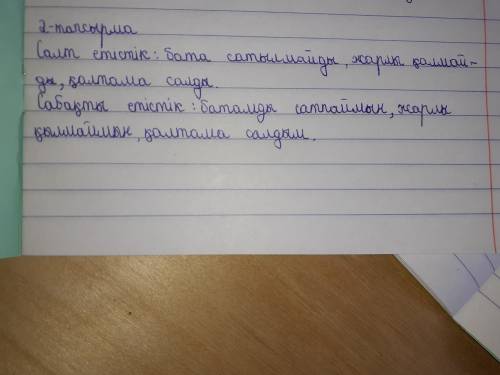 2-тапсырма
Салт етістік: бата сатылмайды, жарлы қалмай-
ды, қалтама салды.
Сабақты етістік: батамды сатпаймын, жарлы
қылмаймын, қалтама салдым.